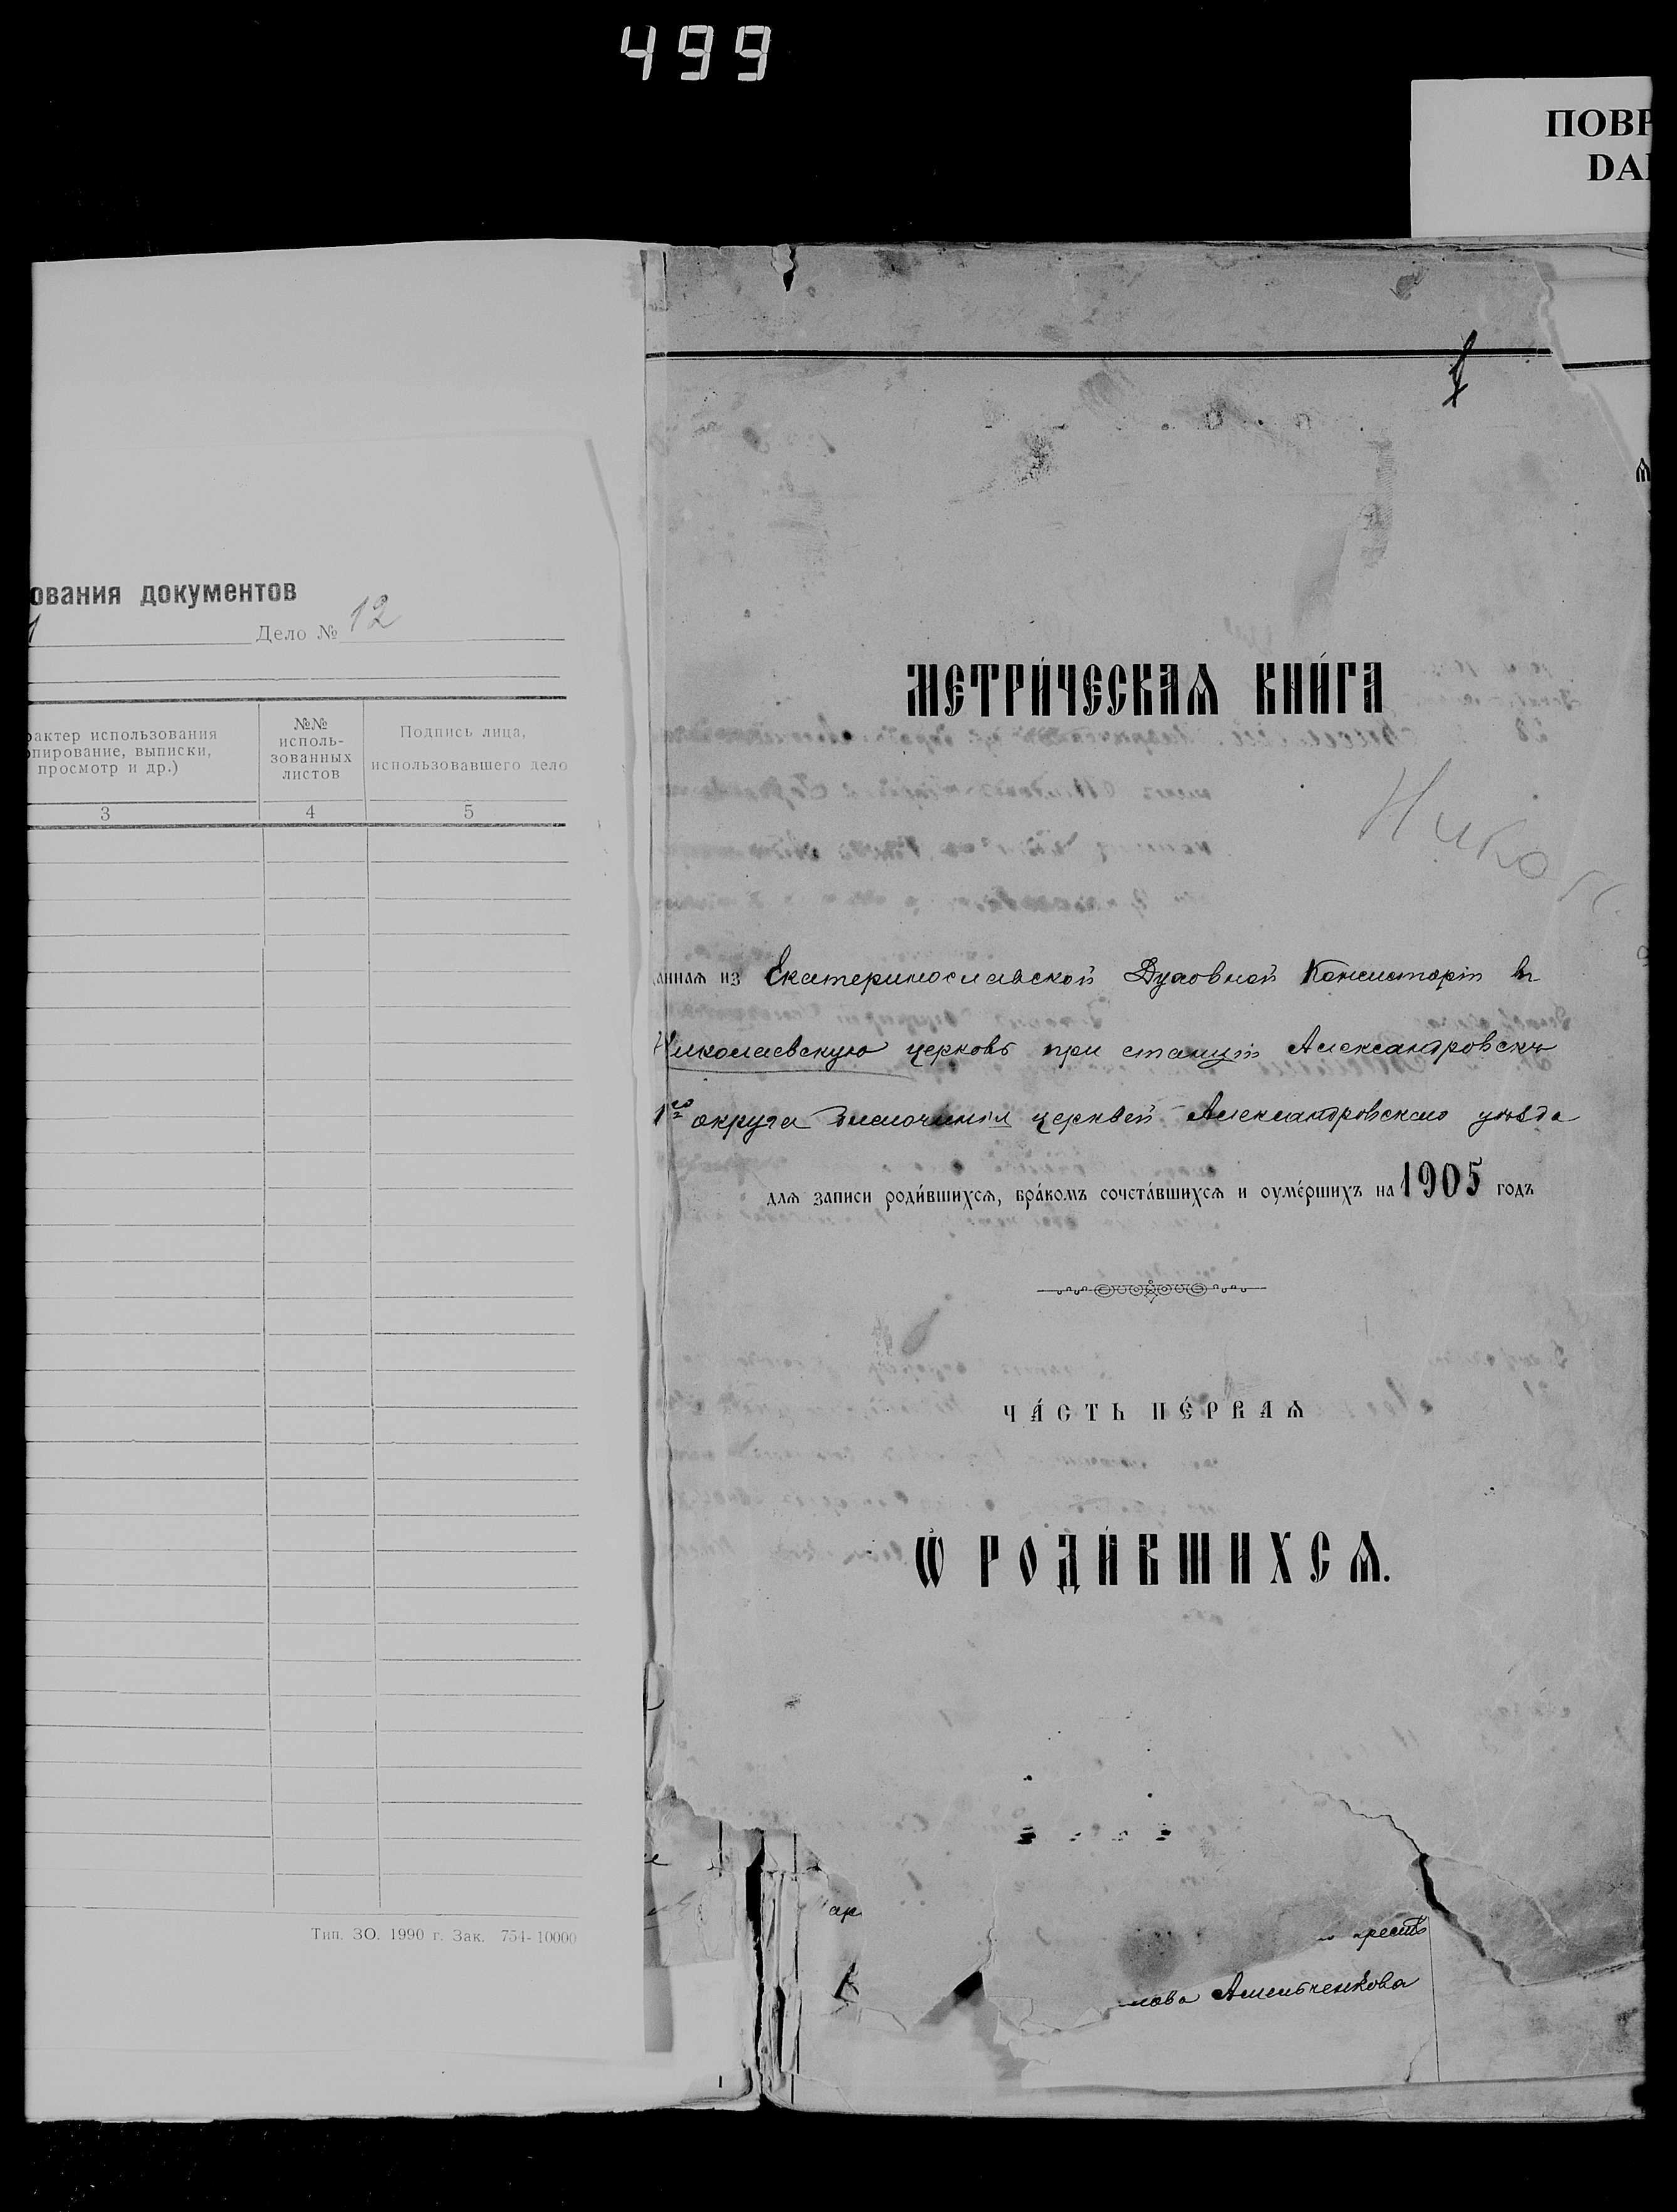 499
ПОВР
DA
ования документов
Дело № 12
рактер использования
опирование, выписки,
просмотр и др.)
№№
исполь-
зованных
листов
Подпись лица,
использовавшего дело
3 4 5
Тип. ЗО. 1990 г. Зак. 754-10000
МЕТРИ́ЧЕСКАѦ КНИ́ГА
Никол
аннаѧ из Екатеринославской Духовной Консисторіи въ
Николаевскую церковь при станціи Александровскъ
1го округа благочинія церквей Александровскаго уѣзда
длѧ записи роди́вшихсѧ, бра́комъ сочета́вшихсѧ и оуме́ршихъ на 1905 годъ
ЧА́СТЬ ПЕ́РВАѦ
Ѡ҆ РОДИ́ВШИХСѦ.
крест
лова Амельченкова